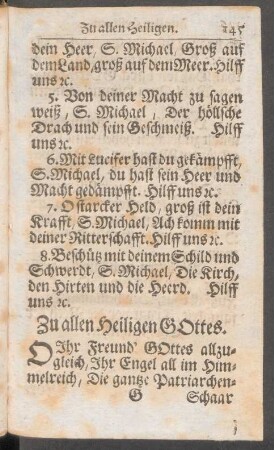 Zu allen Heiligen. 145
dein Heer, S. Michael, Groß auf
dem Land, groß auf dem Meer. Hilff
uns ꝛc.
5. Von deiner Macht zu sagen
weiß, S. Michael, Der höllsche
Drach und sein Geschmeiß. Hilff
uns ꝛc.
6. Mit Lucifer hast du gekämpfft,
S. Michael, du hast sein Heer und
Macht gedämpfft. Hilff uns ꝛc.
7. O starcker Held, groß ist dein
Krafft, S. Michael, Ach komm mit
deiner Ritterschafft. Hilff uns ꝛc.
8. Beschütz mit deinem Schild und
Schwerdt, S. Michael, Die Kirch,
den Hirten und die Heerd. Hilff
uns ꝛc.
Zu allen Heiligen GOttes.
O Ihr Freund GOttes allzu-
gleich, Ihr Engel all im Him-
melreich, Die gantze Patriarchen-
G Schaar